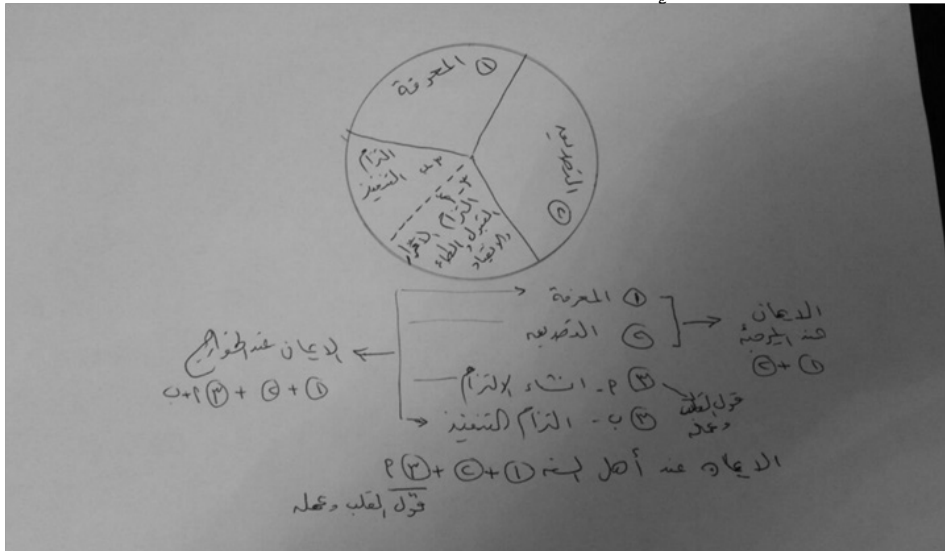 ① المعرفة
② التصديق
٣ ب التزام التنفيذ
٣ أ التزام الإقرار
القبول والطاعة
والانقياد
① المعرفة
② التصديق
③ أ - انشاء الالتزام
③ ب - التزام التنفيذ
الايمان
عند المرجئة
① + ②
قول القلب
وعمله
الايمان عند الخوارج
① + ② + ③ أ + ب
الايمان عند أهل السنة ① + ② + ③ أ
قول القلب وعمله